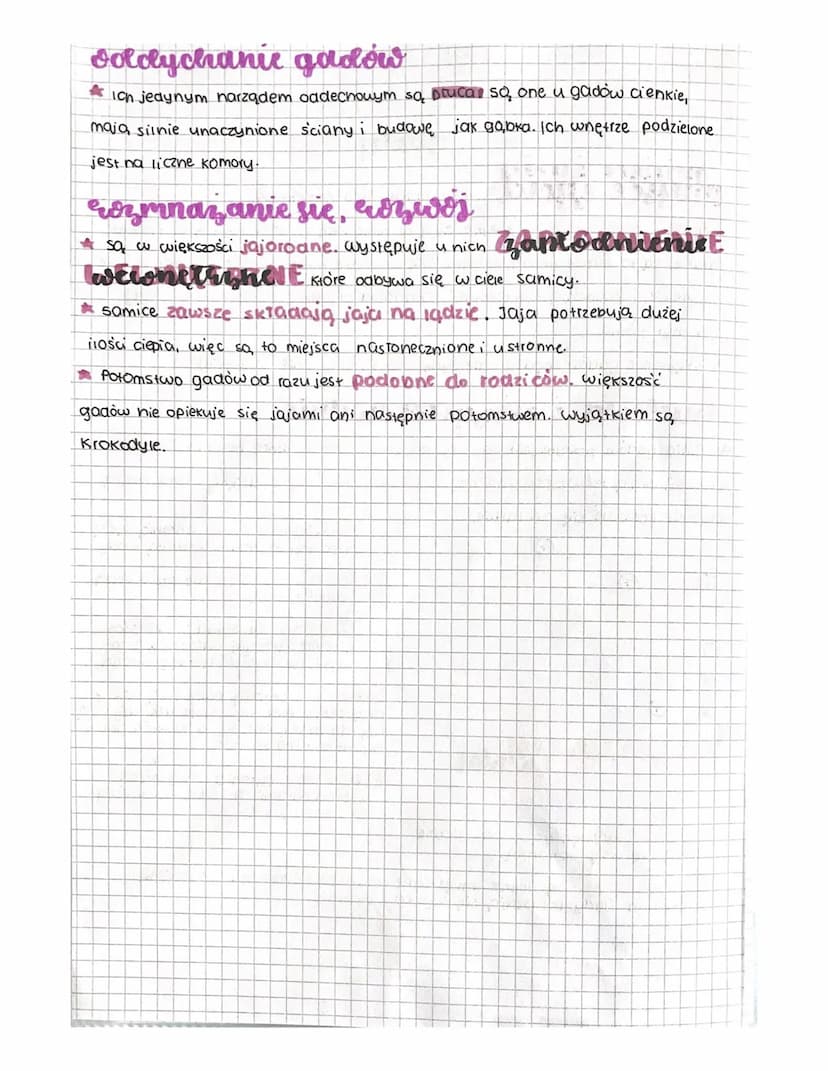 oddychanie gadów
★ Ich jedynym narządem oddechowym są płuca, są one u gadów cienkie,
mają silnie unaczynione ściany i budowę jak gąbka. Ich wnętrze podzielone
jest na liczne komory.
rozmnażanie się, rozwój
★ są w większości jajorodne. Występuje u nich zapłodnienie
wewnętrzne które odbywa się w ciele samicy.
★ samice zawsze składają jaja na lądzie. Jaja potrzebują dużej
ilości ciepła, więc są to miejsca nasłonecznione i ustronne.
★ Potomstwo gadów od razu jest podobne do rodziców. Większość
gadów nie opiekuje się jajami ani następnie potomstwem. Wyjątkiem są
krokodyle.